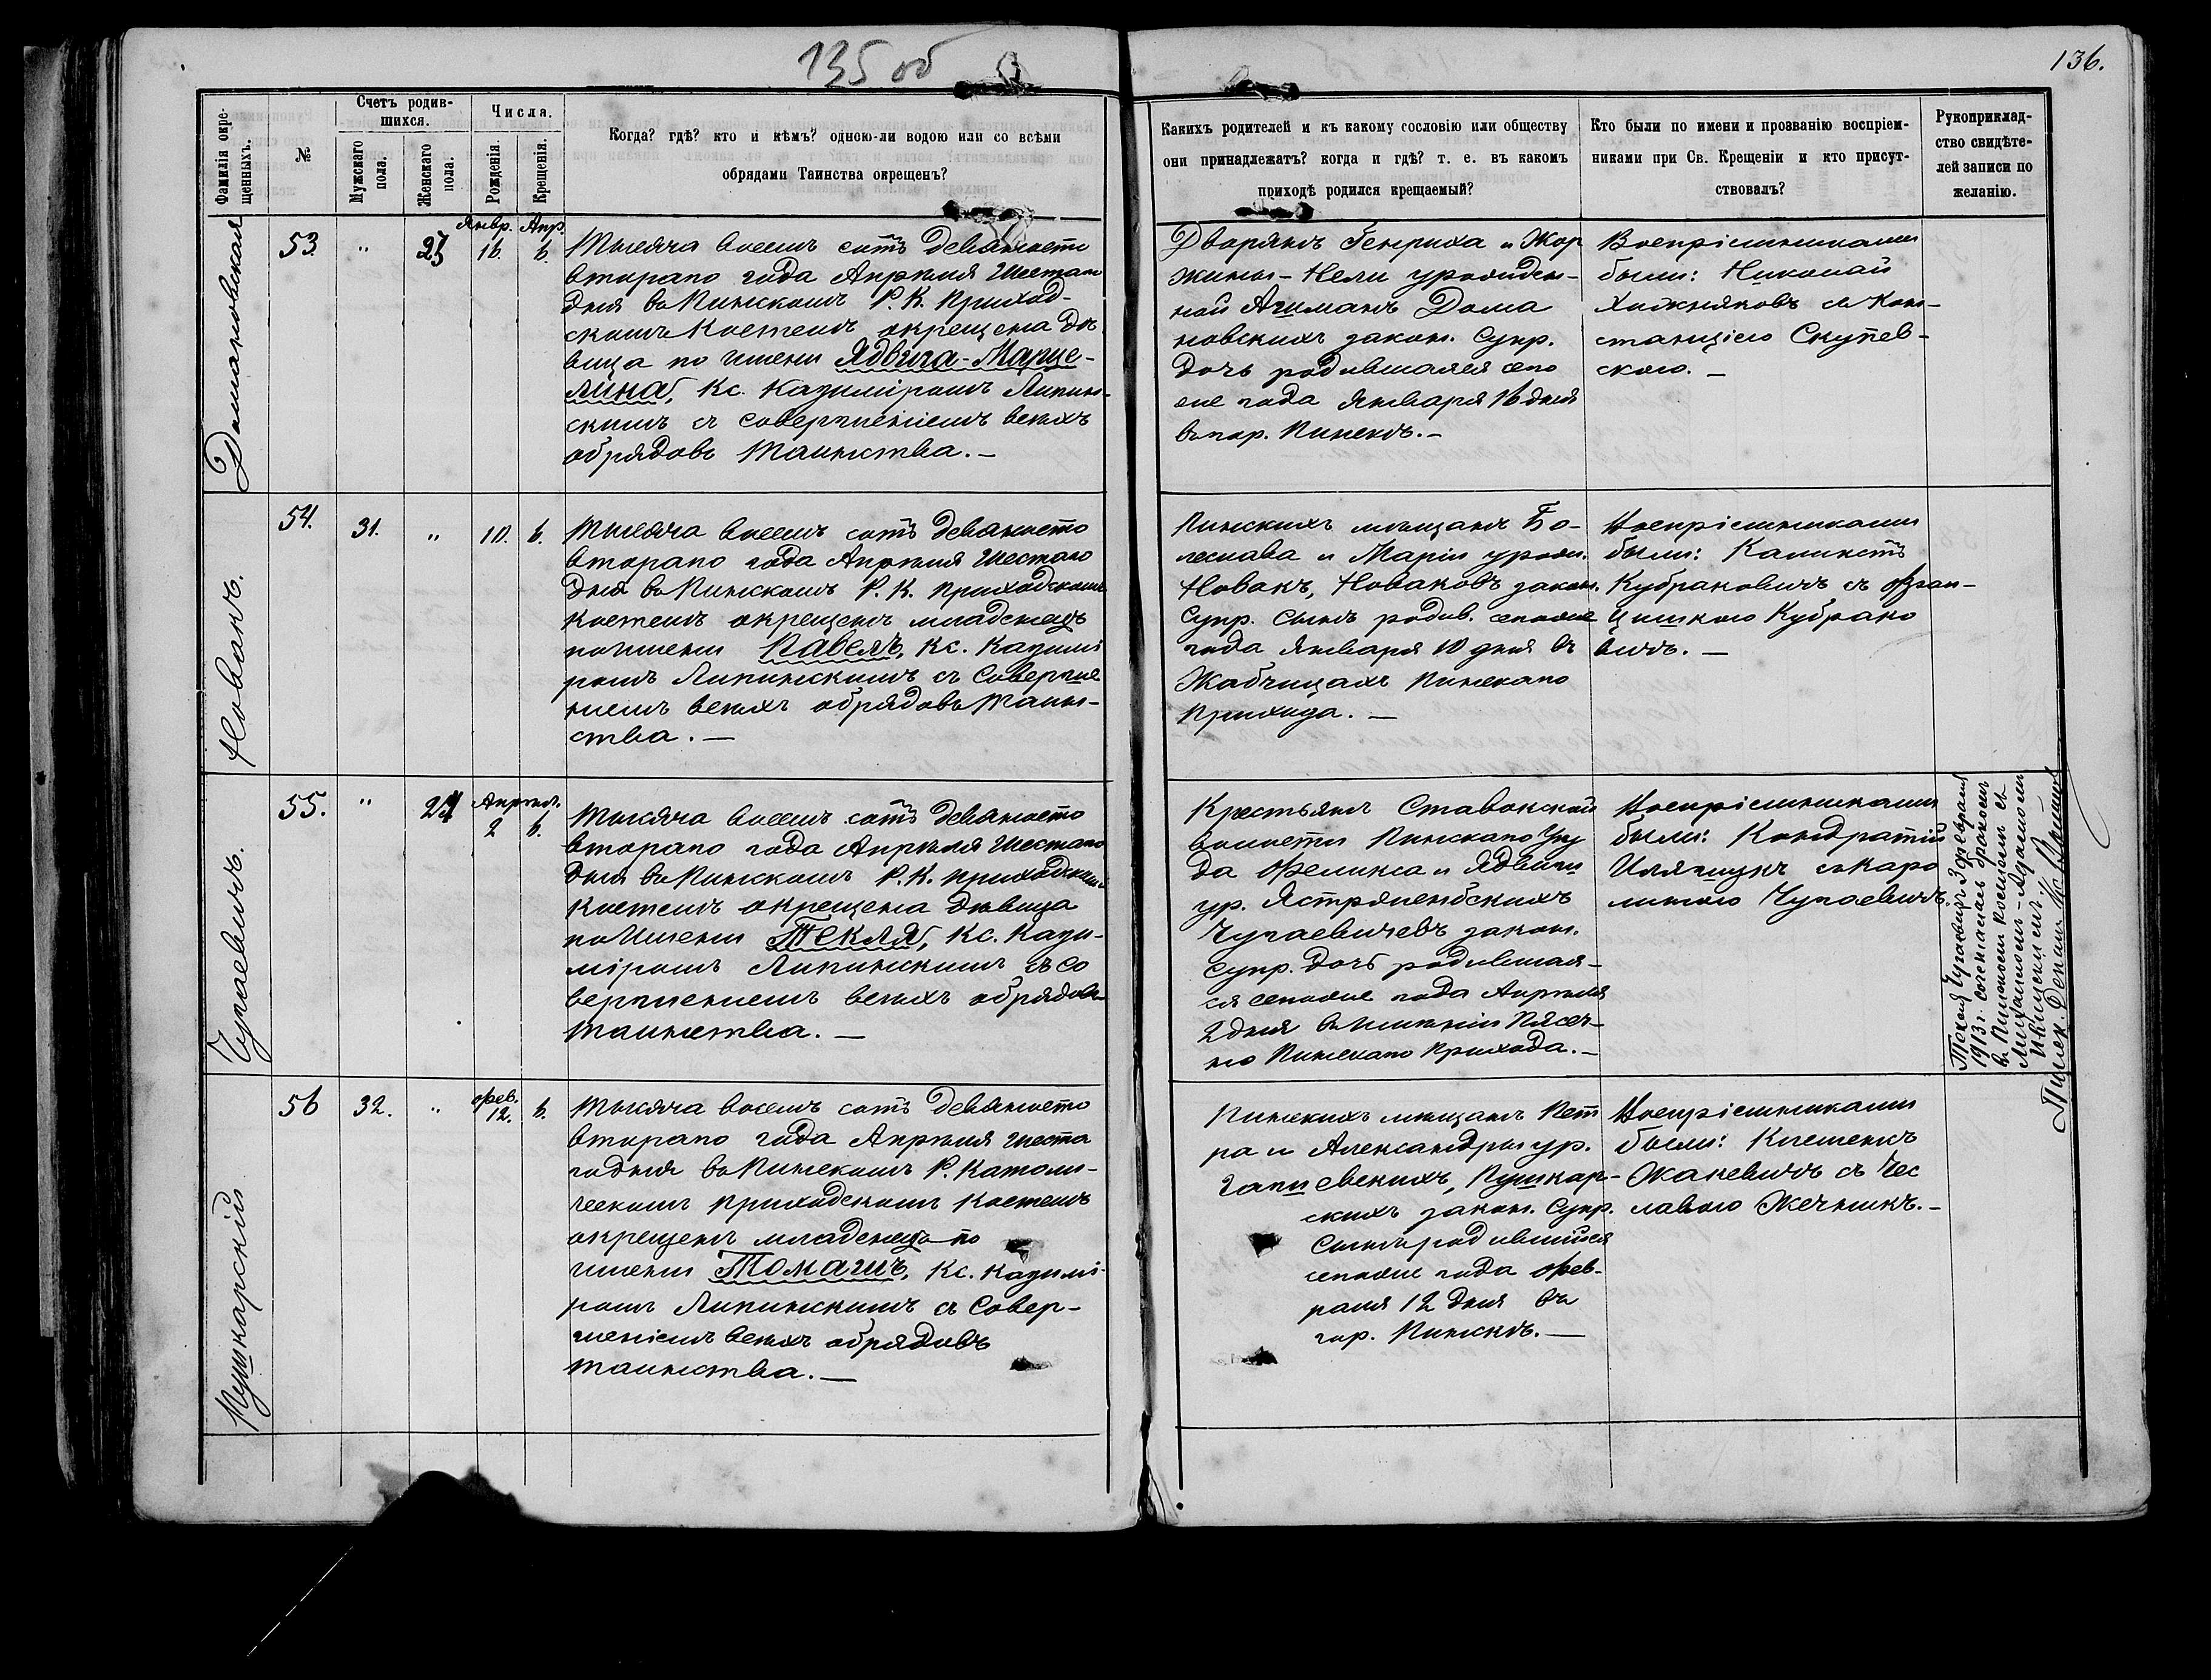 135 об
136.
Фамилія окре-
щенныхъ.
№
Счетъ родив-
шихся.
Мужскаго
пола.
Женскаго
пола.
Числа.
Рожденія.
Крещенія.
Когда? гдѣ? кто и кѣмъ? одною-ли водою или со всѣми
обрядами Таинства окрещенъ?
Какихъ родителей и къ какому сословію или обществу
они принадлежатъ? когда и гдѣ? т. е. въ какомъ
приходѣ родился крещаемый?
Кто были по имени и прозванію воспріем-
никами при Св. Крещеніи и кто присут-
ствовалъ?
Рукоприклад-
ство свидѣте-
лей записи по
желанію.
Домановская
53.
"
Янвр. 16.
Апр. 6.
Тысяча восемь сотъ девяносто
втораго года Апрѣля шестаго
дня въ Пинскомъ Р. К. приход-
скомъ костелѣ окрещена дѣ
вица по имени Ядвига-Марце-
лина, Кс. Казиміромъ Липин-
скимъ съ совершеніемъ всѣхъ
обрядовъ Таинства. —
Дворянъ Генриха и Жор
жины-Нели урожден-
ной Ачиманъ Дома
новскихъ закон. Супр.
дочь родившаяся сего
же года Января 16 дня
въ гор. Пинскѣ. —
Воспріемниками
были: Николай
Хижняковъ съ Кон-
станціею Скупев-
скою. —
Новакъ.
54.
31.
"
10.
6.
Тысяча восемь сотъ девяносто
втораго года Апрѣля шестаго
дня въ Пинскомъ Р. К. приходскомъ
костелѣ окрещенъ младенецъ
по имени Павелъ, Кс. Казимі
ромъ Липинскимъ съ соверше
ніемъ всѣхъ обрядовъ Таин-
ства. —
Пинскихъ мѣщанъ Бо-
леслава и Маріи урож.
Новакъ, Новаковъ закон.
Супр. сынъ родив. сегоже
года Января 10 дня въ
Жабчицахъ Пинскаго
прихода. —
Воспріемниками
были: Каликстъ
Кубраковичъ съ Фран-
цишкою Кубрако
вичъ. —
Чугаевичъ.
55.
"
24
Апрѣля. 2
6.
Тысяча восемь сотъ девяносто
втораго года Апрѣля шестаго
дня въ Пинскомъ Р. К. приходскомъ
костелѣ окрещена дѣвица
по имени Текля, Кс. Кази-
міромъ Липинскимъ съ со
вершеніемъ всѣхъ обрядовъ
таинства. —
Крестьянъ Ставокской
волости Пинскаго Уѣз
да Феликса и Ядвиги
ур. Ястрѣмбскихъ
Чугаевичевъ закон.
супр. дочь родившая-
ся сегоже года Апрѣля
2 дня въ имѣніи Пясеч-
но Пинскаго прихода. —
Воспріемниками
были: Кондратій
Иляшукъ съ Каро
линою Чугаевичъ.
Текля Чугаевичъ 3 февраля
1913 г. сочеталась бракомъ
въ Пинскомъ костелѣ съ
Михаиломъ-Адамомъ
Пушкарскій
56
32.
"
Фев. 12.
6.
Тысяча восемь сотъ девяносто
втораго года Апрѣля шеста
го дня въ Пинскомъ Р. Католи-
ческомъ приходскомъ костелѣ
окрещенъ младенецъ по
имени Томашъ, Кс. Казимі-
ромъ Липинскимъ съ совер-
шеніемъ всѣхъ обрядовъ
таинства. —
Пинскихъ мѣщанъ Пет
ра и Александры ур.
Гапи евскихъ, Пушкар-
скихъ закон. Супр.
сынъ родившійся
сегоже года Фев-
раля 12 дня въ
гор. Пинскѣ. —
Воспріемниками
были: Клеменсъ
Жакевичъ съ Чес
лавою Жечникъ. —